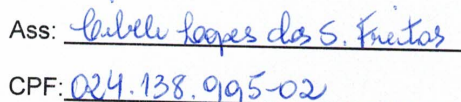 Ass: Cibele Lopes dos S. Freitas
CPF: 024.138.995-02